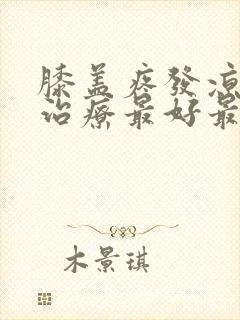 膝盖疼發凉
治療最好最
木景琪